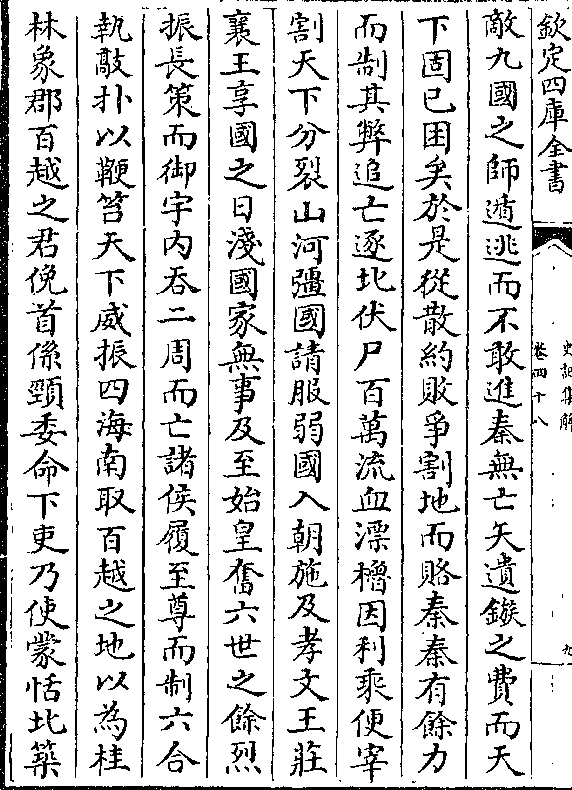 欽定四庫全書
史記集解
卷四十八
九
敵九國之師遁逃而不敢進秦無亡矢遺鏃之費而天
下固已困矣於是從散約敗爭割地而賂秦秦有餘力
而制其弊追亡逐北伏尸百萬流血漂櫓因利乘便宰
割天下分裂山河彊國請服弱國入朝施及孝文王莊
襄王享國之日淺國家無事及至始皇奮六世之餘烈
振長策而御宇內吞二周而亡諸侯履至尊而制六合
執敲扑以鞭笞天下威振四海南取百越之地以為桂
林象郡百越之君俛首係頸委命下吏乃使蒙恬北築